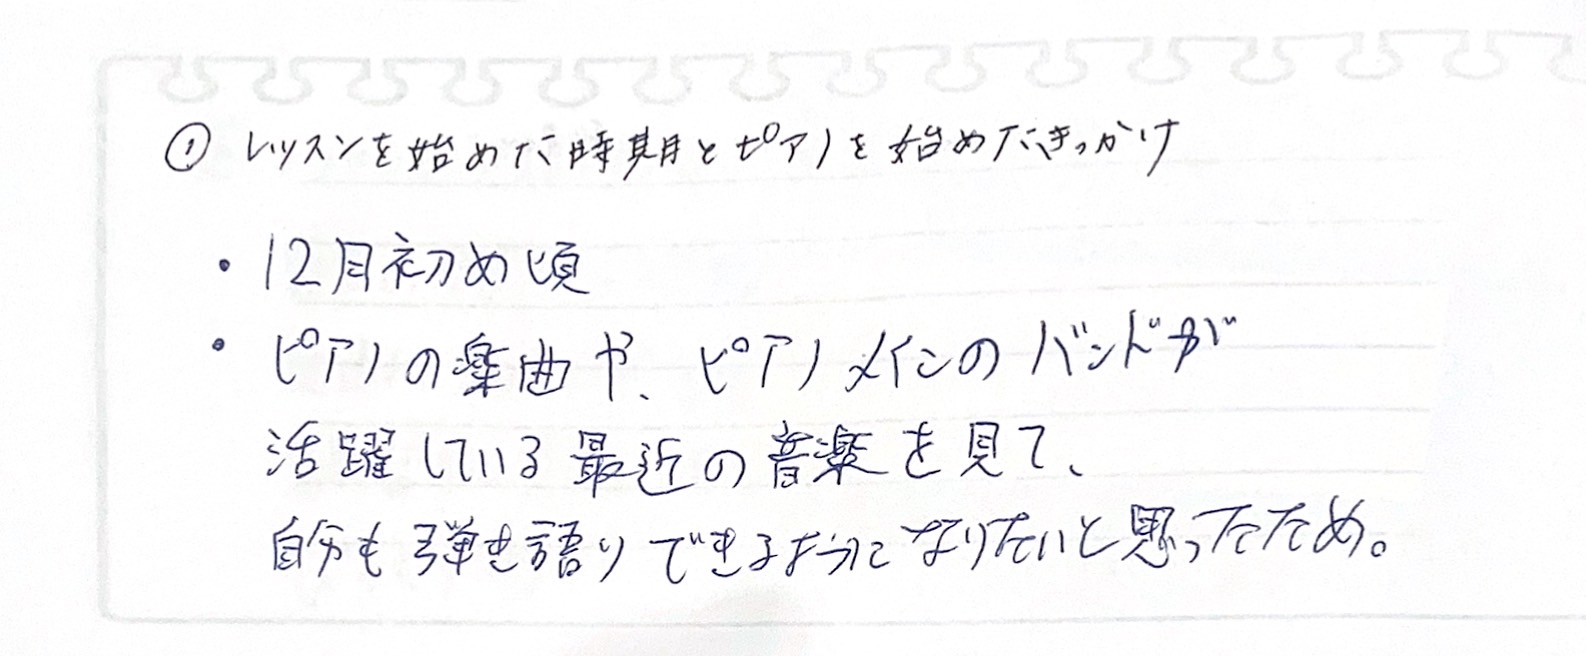 ① レッスンを始めた時期とピアノを始めたきっかけ
・12月初め頃
・ピアノの楽曲や、ピアノメインのバンドが
活躍している最近の音楽を見て、
自分も弾き語りできるようになりたいと思ったため。